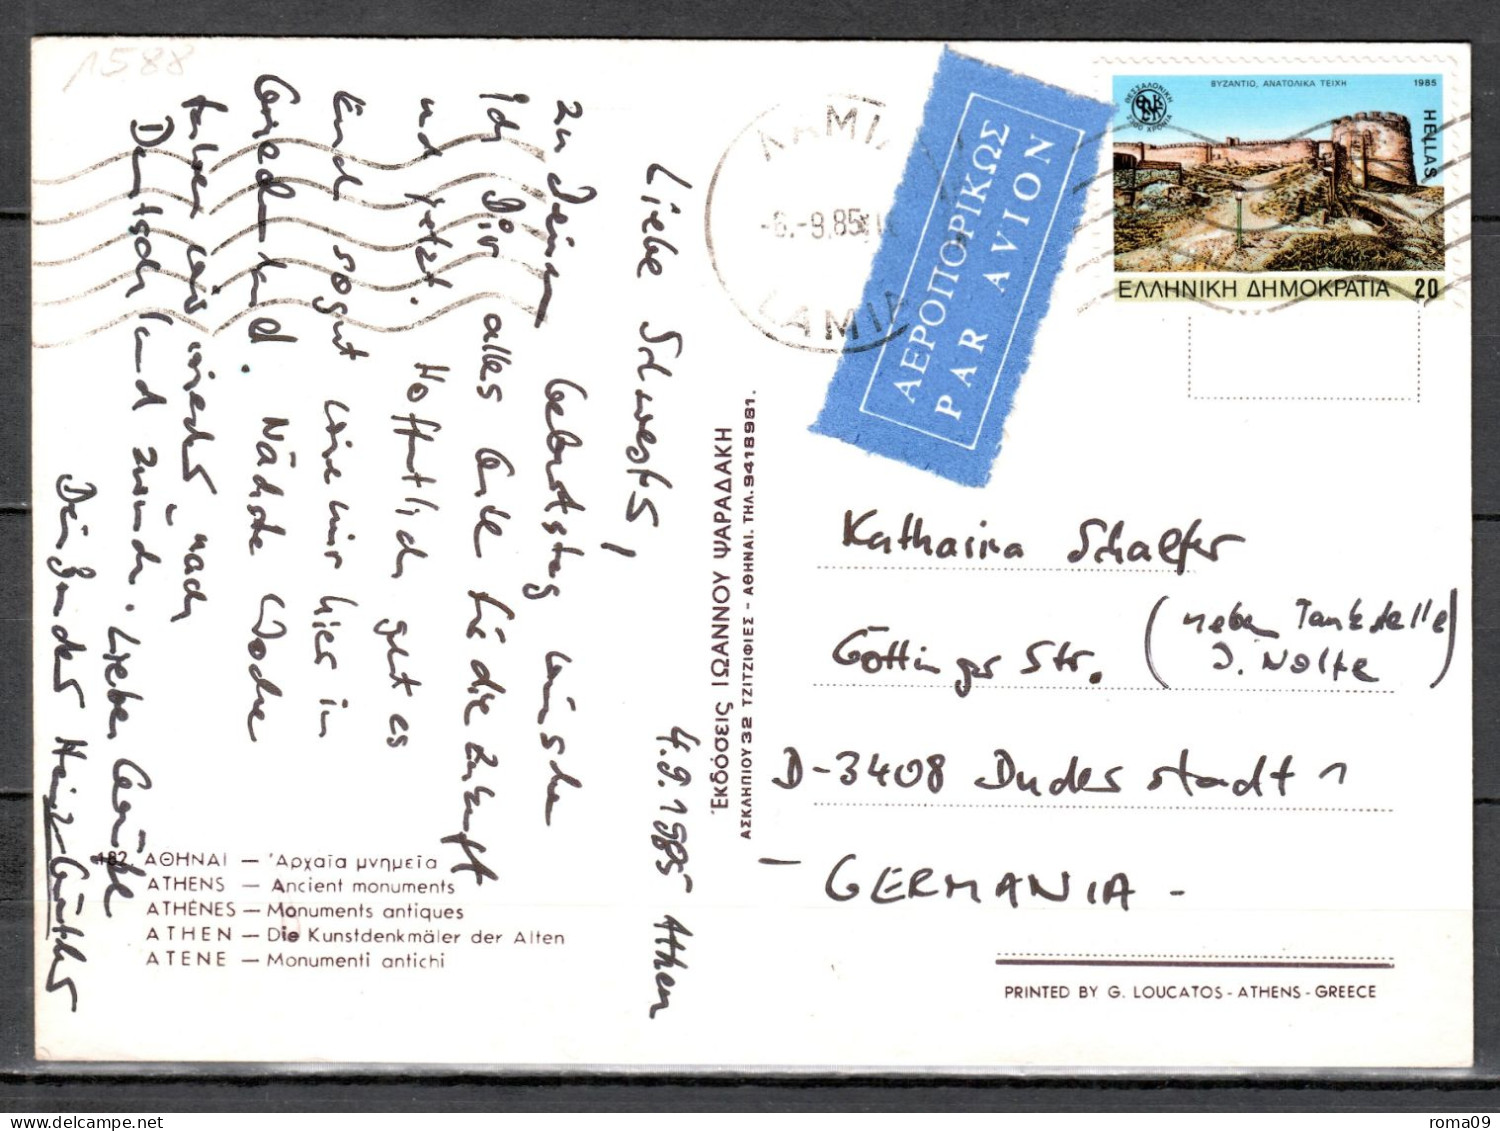 1588
4.9.1985 Athen
Liebe Schwester,
zu Deinem Geburtstag wünsche
Ich Dir alles Gute für die Zukunft
und jetzt. Hoffentlich geht es
Euch so gut wie mir hier in
Griechenland. Nächste Woche
fahren wir wieder nach
Deutschland zurück. Lieben Grüße
Dein Bruder Heinz Günther
182. ΑΘΗΝΑΙ — Ἀρχαῖα μνημεῖα
ATHENS — Ancient monuments
ATHÉNES — Monuments antiques
ATHEN — Die Kunstdenkmäler der Alten
ATENE — Monumenti antichi
Ἐκδόσεις ΙΩΑΝΝΟΥ ΨΑΡΑΔΑΚΗ
ΑΣΚΛΗΠΙΟΥ 32 ΤΖΙΤΖΙΦΙΕΣ - ΑΘΗΝΑΙ. ΤΗΛ. 9418981.
ΛΑΜΙΑ
-6.-9.85
LAMIA
ΑΕΡΟΠΟΡΙΚΩΣ
PAR AVION
ΒΥΖΑΝΤΙΟ, ΑΝΑΤΟΛΙΚΑ ΤΕΙΧΗ 1985
ΘΕΣΣΑΛΟΝΙΚΗ
2300 ΧΡΟΝΙΑ
HELLAS
ΕΛΛΗΝΙΚΗ ΔΗΜΟΚΡΑΤΙΑ 20
Katharina Schaefer
Göttinger Str. (neben Tankstelle
J. Nolte)
D-3408 Duderstadt 1
- GERMANIA -
PRINTED BY G. LOUCATOS - ATHENS - GREECE
roma09